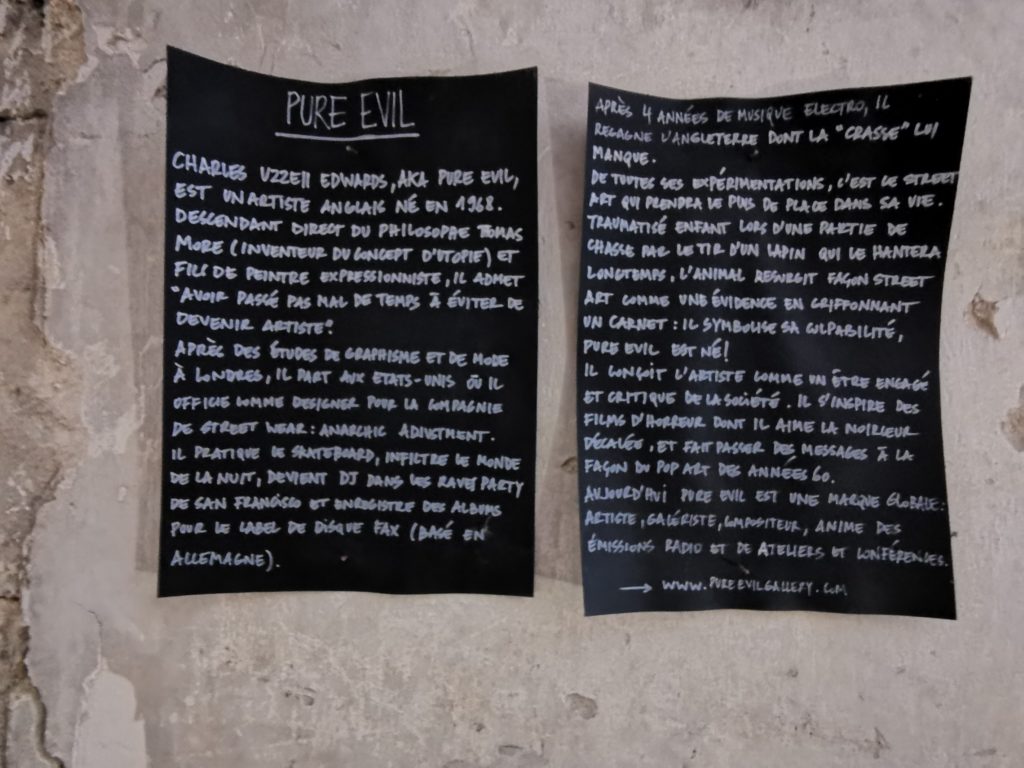 PURE EVIL
CHARLES UZZELL EDWARDS, AKA PURE EVIL,
EST UN ARTISTE ANGLAIS NÉ EN 1968.
DESCENDANT DIRECT DU PHILOSOPHE TOMAS
MORE (INVENTEUR DU CONCEPT D'UTOPIE) ET
FILS DE PEINTRE EXPRESSIONNISTE, IL ADMET
"AVOIR PASSÉ PAS MAL DE TEMPS À ÉVITER DE
DEVENIR ARTISTE".
APRÈS DES ÉTUDES DE GRAPHISME ET DE MODE
À LONDRES, IL PART AUX ETATS-UNIS OÙ IL
OFFICIE COMME DESIGNER POUR LA COMPAGNIE
DE STREET WEAR : ANARCHIC ADJUSTMENT.
IL PRATIQUE LE SKATEBOARD, INFILTRE LE MONDE
DE LA NUIT, DEVIENT DJ DANS LES RAVES PARTY
DE SAN FRANCISCO ET ENREGISTRE DES ALBUMS
POUR LE LABEL DE DISQUE FAX (BASÉ EN
ALLEMAGNE).
APRÈS 4 ANNÉES DE MUSIQUE ELECTRO, IL
REGAGNE L'ANGLETERRE DONT LA "CRASSE" LUI
MANQUE.
DE TOUTES SES EXPÉRIMENTATIONS, C'EST LE STREET
ART QUI PRENDRA LE PLUS DE PLACE DANS SA VIE.
TRAUMATISÉ ENFANT LORS D'UNE PARTIE DE
CHASSE PAR LE TIR D'UN LAPIN QUI LE HANTERA
LONGTEMPS, L'ANIMAL RESURGIT FAÇON STREET
ART COMME UNE ÉVIDENCE EN GRIFFONNANT
UN CARNET : IL SYMBOLISE SA CULPABILITÉ,
PURE EVIL EST NÉ !
IL CONÇOIT L'ARTISTE COMME UN ÊTRE ENGAGÉ
ET CRITIQUE DE LA SOCIÉTÉ. IL S'INSPIRE DES
FILMS D'HORREUR DONT IL AIME LA NOIRCEUR
DÉCALÉE, ET FAIT PASSER DES MESSAGES À LA
FAÇON DU POP ART DES ANNÉES 60.
AUJOURD'HUI PURE EVIL EST UNE MARQUE GLOBALE :
ARTISTE, GALÉRISTE, COMPOSITEUR, ANIME DES
ÉMISSIONS RADIO ET DE ATELIERS ET CONFÉRENCES.
→ WWW.PUREEVILGALLERY.COM